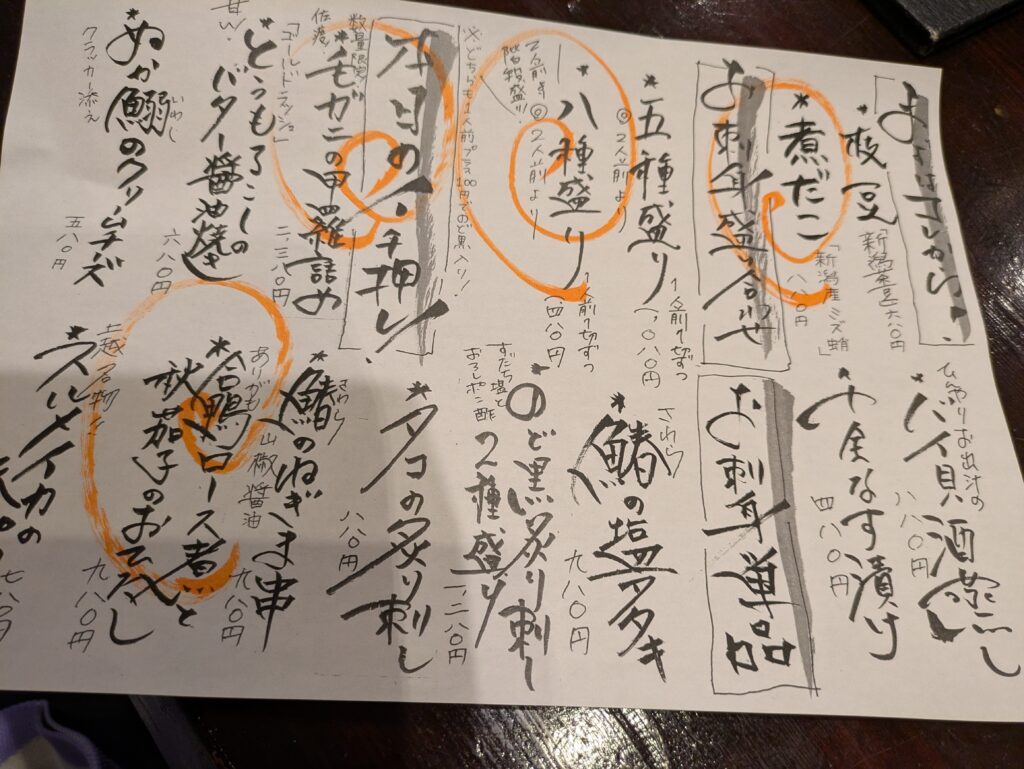 まずはコレから!
*枝豆
「新潟産」
六八〇円
*煮だこ
「新潟産ミズ蛸」
八八〇円
お刺身盛り合わせ
*五種盛り
◎2人前より
1人前1切ずつ
一、〇八〇円
*八種盛り
◎2人前より
1人前1切ずつ
一、四八〇円
※どちらも1人前プラス100円でのど黒入り!
本日のイチ押し
数量限定
佐渡
*毛ガニの甲羅詰め
二、三八〇円
「ゴールドラッシュ」
*とうもろこしの
バター醤油焼き
六八〇円
甘W
いわし
ぬか鰯のクリームチーズ
クラッカー添え
五八〇円
ひんやりお出汁の
*バイ貝酒蒸し
八八〇円
十全なす漬け
四八〇円
お刺身単品
さわら
*鰆の塩タタキ
九八〇円
*のど黒炙り刺し
2種盛り
すだち塩と
おろしポン酢
一、二八〇円
*タコの炙り刺し
八八〇円
さわら
*鰆のねぎま串
山椒醤油
九八〇円
*合鴨ロース煮と
秋茄子のおろし
九八〇円
越名物
*スルメイカの
七八〇円